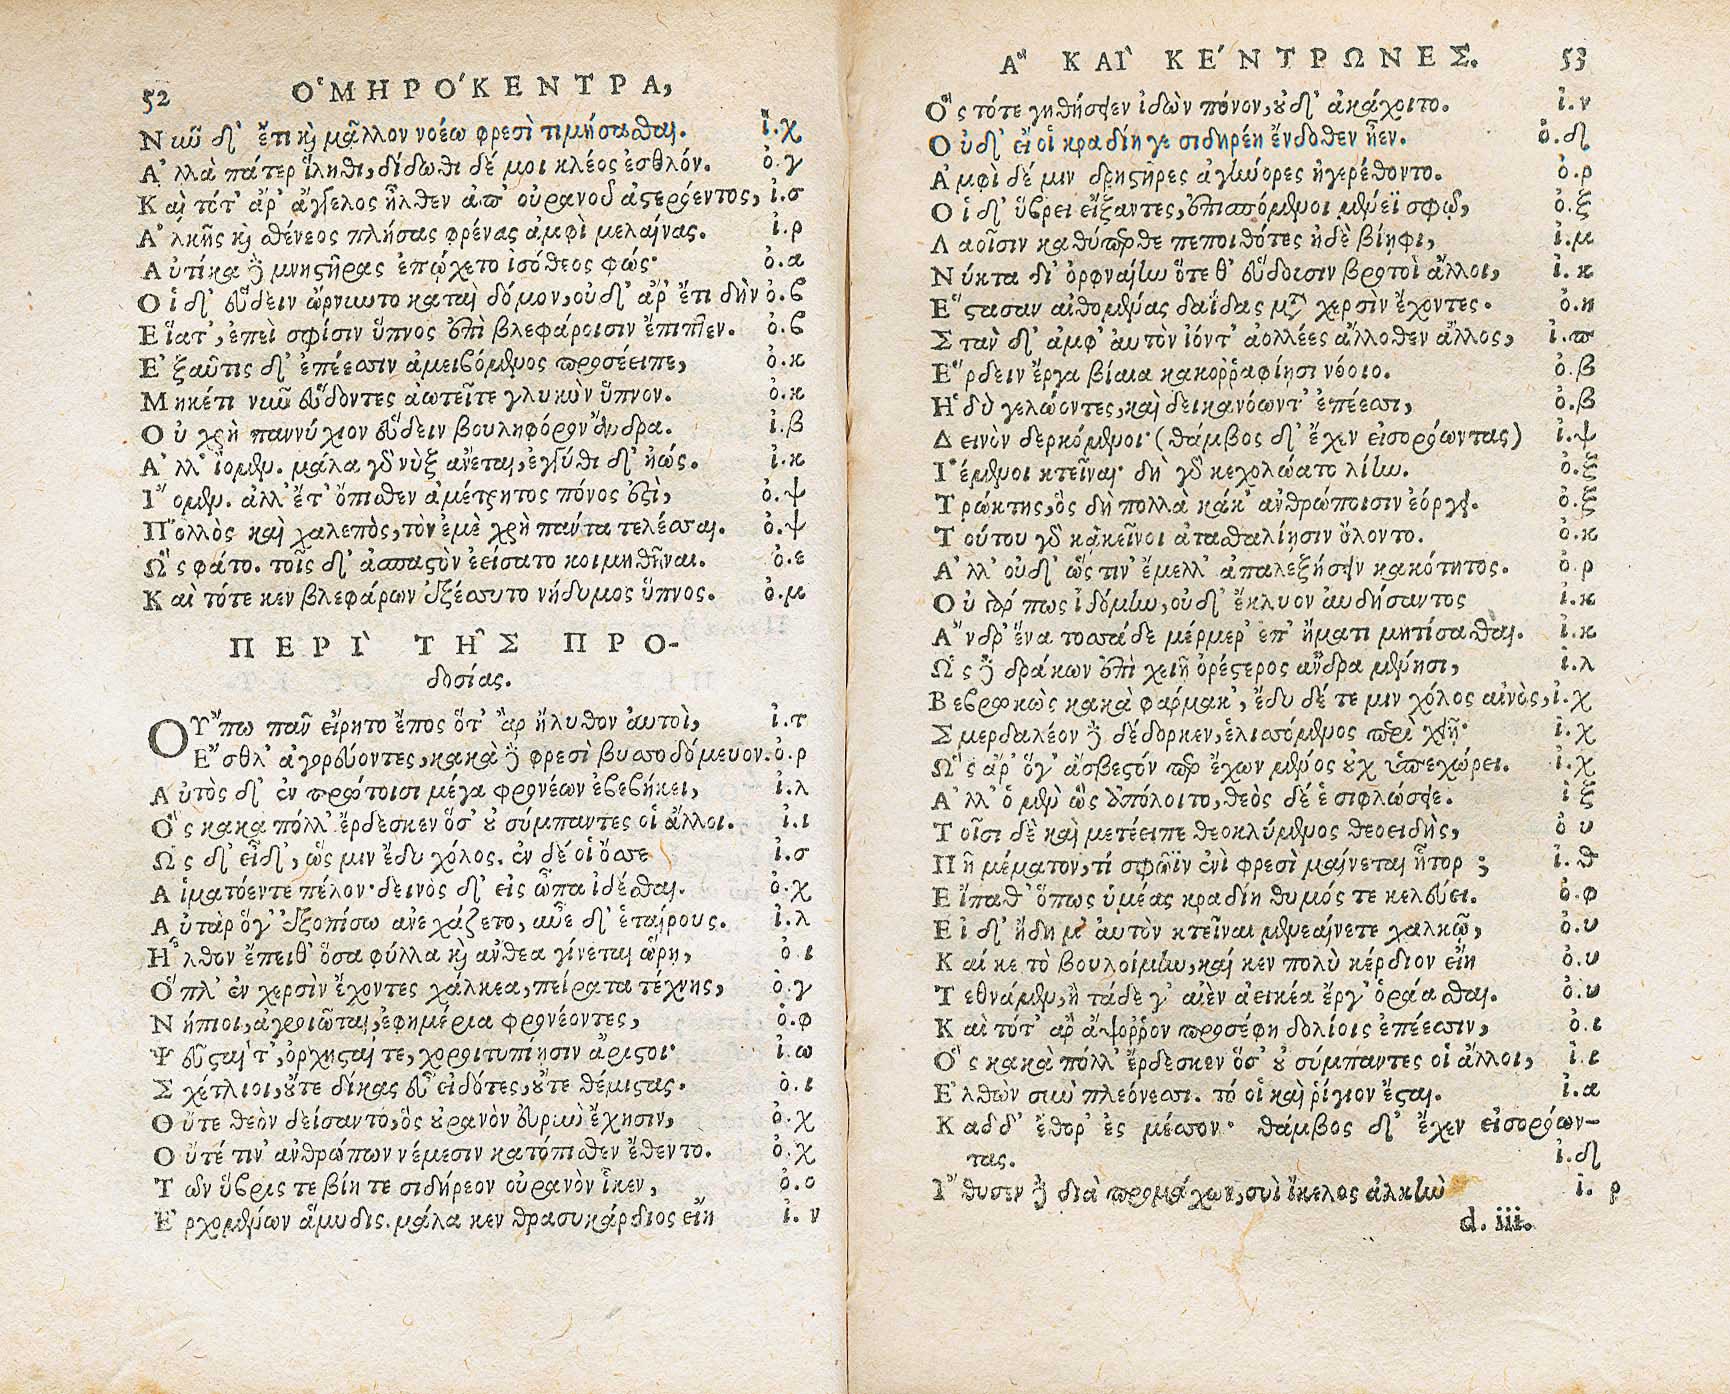 52 ὉΜΗΡΟΎΚΕΝΤΡΑ,
Νῦν δ' ἔτι καὶ μᾶλλον νοέω φρεσὶ τιμήσασθαι. ἰ.χ
Ἀλλὰ πάτερ ἵληθι, δίδωθι δέ μοι κλέος ἐσθλόν. ὀ.γ
Καὶ τότ' ἄρ' ἄγγελος ἦλθεν ἀπ' οὐρανοῦ ἀστερόεντος, ἰ.σ
Ἀλκῆς καὶ σθένεος πλήσας φρένας ἀμφὶ μελαίνας. ἰ.ρ
Αὐτίκα δὲ μνηστῆρας ἐπῴχετο ἰσόθεος φώς· ὀ.α
Οἱ δ' εὕδειν ὤρνυντο κατὰ δόμον, οὐδ' ἄρ' ἔτι δὴν ὀ.β
Εἵατ', ἐπεὶ σφίσιν ὕπνος ἐπὶ βλεφάροισιν ἔπιπτεν. ὀ.β
Ἐξαῦτις δ' ἐπέεσσιν ἀμειβόμενος προσέειπε, ὀ.κ
Μηκέτι νῦν εὕδοντες ἀωτεῖτε γλυκὺν ὕπνον. ὀ.κ
Οὐ χρὴ παννύχιον εὕδειν βουληφόρον ἄνδρα. ἰ.β
Ἀλλ' ἴομεν. μάλα γὰρ νὺξ ἄνεται, ἐγγύθι δ' ἠώς. ἰ.κ
Ἴομεν. ἀλλ' ἔτ' ὄπισθεν ἀμέτρητος πόνος ἐστὶ, ὀ.ψ
Πολλὸς καὶ χαλεπὸς, τὸν ἐμὲ χρὴ πάντα τελέσσαι. ὀ.ψ
Ὣς φάτο. τοῖς δ' ἀσπαστὸν ἐείσατο κοιμηθῆναι. ὀ.ε
Καὶ τότε κεν βλεφάρων ἐξέσσυτο νήδυμος ὕπνος. ὀ.μ
ΠΕΡῚ ΤΗ͂Σ ΠΡΟ-
δοσίας.
Οὔπω πᾶν εἴρητο ἔπος ὅτ' ἂρ ἤλυθον αὐτοὶ, ἰ.τ
Ἔσθλ' ἀγορεύοντες, κακὰ δὲ φρεσὶ βυσσοδόμευον. ὀ.ρ
Αὐτὸς δ' ἐν πρώτοισι μέγα φρονέων ἐβεβήκει, ἰ.λ
Ὃς κακὰ πόλλ' ἔρδεσκεν ὅσ' οὐ σύμπαντες οἱ ἄλλοι. ἰ.ι
Ὡς δ' εἶδ', ὥς μιν ἔδυ χόλος. ἐν δέ οἱ ὄσσε ἰ.σ
Αἱματόεντε πέλον· δεινὸς δ' εἰς ὦπα ἰδέσθαι. ὀ.χ
Αὐτὰρ ὅγ' ἐξοπίσω ἀνεχάζετο, αὖε δ' ἑταίρους. ἰ.λ
Ἦλθον ἔπειθ' ὅσα φύλλα καὶ ἄνθεα γίνεται ὥρῃ, ὀ ι
Ὅπλ' ἐν χερσὶν ἔχοντες χάλκεα, πείρατα τέχνης, ὀ.γ
Νήπιοι, ἀγροιῶται, ἐφημέρια φρονέοντες, ὀ.φ
Ψεῦσταί τ', ὀρχησταί τε, χοροιτυπίησιν ἄριστοι· ἰ.ω
Σχέτλιοι, οὔτε δίκας εὖ εἰδότες, οὔτε θέμιστας. ὀ.ι
Οὔτε θεὸν δείσαντο, ὃς οὐρανὸν εὐρὺν ἔχησιν, ὀ.χ
Οὔτέ τιν' ἀνθρώπων νέμεσιν κατόπισθεν ἔθεντο. ὀ.χ
Τῶν ὕβρις τε βίη τε σιδήρεον οὐρανὸν ἷκεν, ὀ.ο
Ἐρχομένων ἄμυδις. μάλα κεν θρασυκάρδιος εἴη ἰ. ν
Ἃ ΚΑῚ ΚΈΝΤΡΩΝΕΣ. 53
Ὃς τότε γηθήσειεν ἰδὼν πόνον, οὐδ' ἀκάχοιτο. ἰ.ν
Οὐδ' εἴ οἱ κραδίη γε σιδηρέη ἔνδοθεν ἦεν. ὀ.δ
Ἀμφὶ δέ μιν δρηστῆρες ἀγήνορες ἠγερέθοντο. ὀ.ρ
Οἱ δ' ὕβρει εἴξαντες, ἐπισπόμενοι μένεϊ σφῷ, ὀ.ξ
Λαοῖσιν καθύπερθε πεποιθότες ἠδὲ βίηφι, ἰ.μ
Νύκτα δι' ὀρφναίην ὅτε θ' εὕδουσιν βροτοὶ ἄλλοι, ἰ.κ
Ἕστασαν αἰθομένας δαΐδας μετὰ χερσὶν ἔχοντες. ὀ.η
Στὰν δ' ἀμφ' αὐτὸν ἰόντ' ἀολλέες ἄλλοθεν ἄλλος, ἰ.π
Ἔρδειν ἔργα βίαια κακοῤῥαφίησι νόοιο. ὀ.β
Ἡδὺ γελώοντες, καὶ δεικανόωντ' ἐπέεσσι, ὀ.β
Δεινὸν δερκόμενοι· (θάμβος δ' ἔχεν εἰσορόωντας) ἰ.ψ
Ἱέμενοι κτεῖναι· δὴ γὰρ κεχολώατο λίην. ὀ.ξ
Τρώκτης, ὃς δὴ πολλὰ κάκ' ἀνθρώποισιν ἐόργει. ὀ.ξ
Τούτου γὰρ κἀκεῖνοι ἀτασθαλίησιν ὄλοντο. ὀ.κ
Ἀλλ' οὐδ' ὥς τιν' ἔμελλ' ἀπαλεξήσειν κακότητος. ὀ.ρ
Οὐ γάρ πως ἰδόμην, οὐδ' ἔκλυον αὐδήσαντος ἰ.κ
Ἄνδρ' ἕνα τοσσάδε μέρμερ' ἐπ' ἤματι μητίσασθαι. ἰ.κ
Ὡς δὲ δράκων ἐπὶ χειῇ ὀρέστερος ἄνδρα μένῃσι, ἰ.λ
Βεβρωκὼς κακὰ φάρμακ', ἔδυ δέ τε μιν χόλος αἰνὸς, ἰ.χ
Σμερδαλέον δὲ δέδορκεν, ἑλισσόμενος περὶ χειῇ· ἰ.χ
Ὣς ἄρ' ὅγ' ἄσβεστόν περ ἔχων μένος οὐχ ὑπεχώρει. ἰ.χ
Ἀλλ' ὁ μὲν ὣς ἀπόλοιτο, θεὸς δέ ἑ σιφλώσειε. ἰ ξ
Τοῖσι δὲ καὶ μετέειπε θεοκλύμενος θεοειδὴς, ὀ υ
Πῆ μέματον, τί σφῶϊν ἐνὶ φρεσὶ μαίνεται ἦτορ ; ἰ.θ
Εἴπαθ' ὅπως ὑμέας κραδίη θυμός τε κελεύει. ὀ.φ
Εἰ δ' ἤδη μ' αὐτὸν κτεῖναι μενεαίνετε χαλκῷ, ὀ.υ
Καί κε τὸ βουλοίμην, καί κεν πολὺ κέρδιον εἴη ὀ.υ
Τεθνάμεν, ἢ τάδε γ' αἰὲν ἀεικέα ἔργ' ὁράασθαι. ὀ.υ
Καὶ τότ' ἂρ ἄψοῤῥον προσέφη δολίοις ἐπέεσσιν, ὀ.ι
Ὃς κακὰ πόλλ' ἔρδεσκεν ὅσ' οὐ σύμπαντες οἱ ἄλλοι, ἰ.ι
Ἐλθὼν σὺν πλεόνεσσι. τό οἱ καὶ ῥίγιον ἔσται. ἰ.α
Καδδ' ἔθορ' ἐς μέσσον· θάμβος δ' ἔχεν εἰσορόων-
τας. ἰ.δ
Ἴθυσεν δὲ διὰ προμάχων, συῒ ἴκελος ἀλκὴν ἰ. ρ
d. iii.